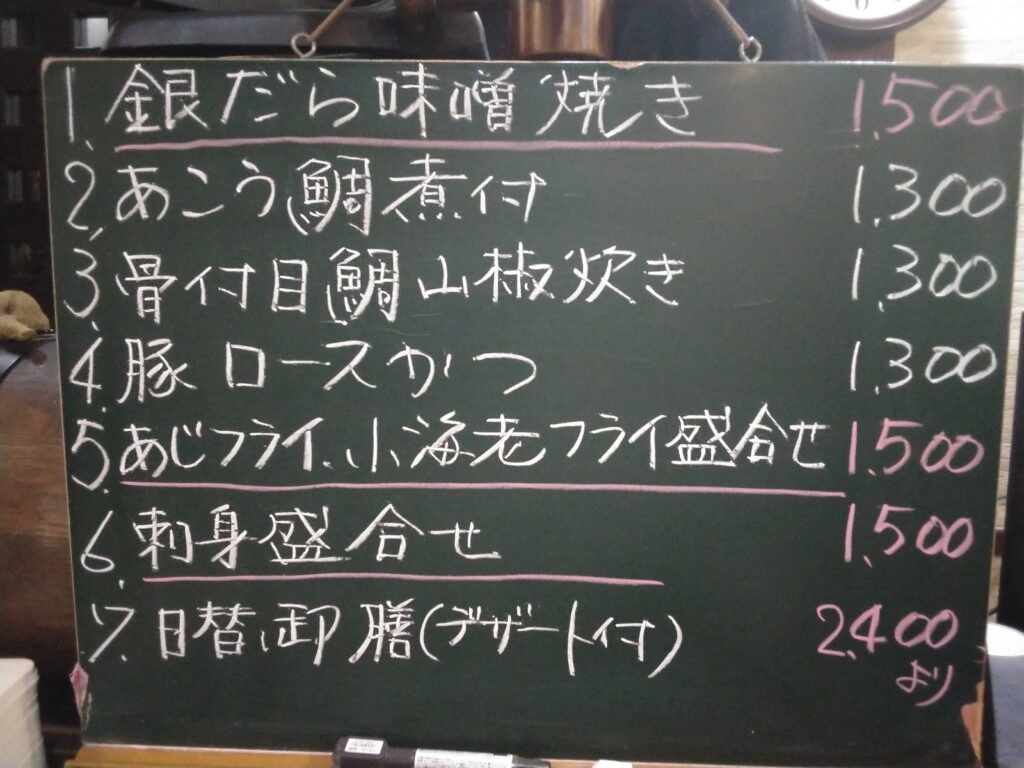 1. 銀だら味噌焼き 1,500
2. あこう鯛煮付 1,300
3. 骨付目鯛山椒炊き 1,300
4. 豚ロースかつ 1,300
5. あじフライ、小海老フライ盛合せ 1,500
6. 刺身盛合せ 1,500
7. 日替御膳(デザート付) 2,400
より